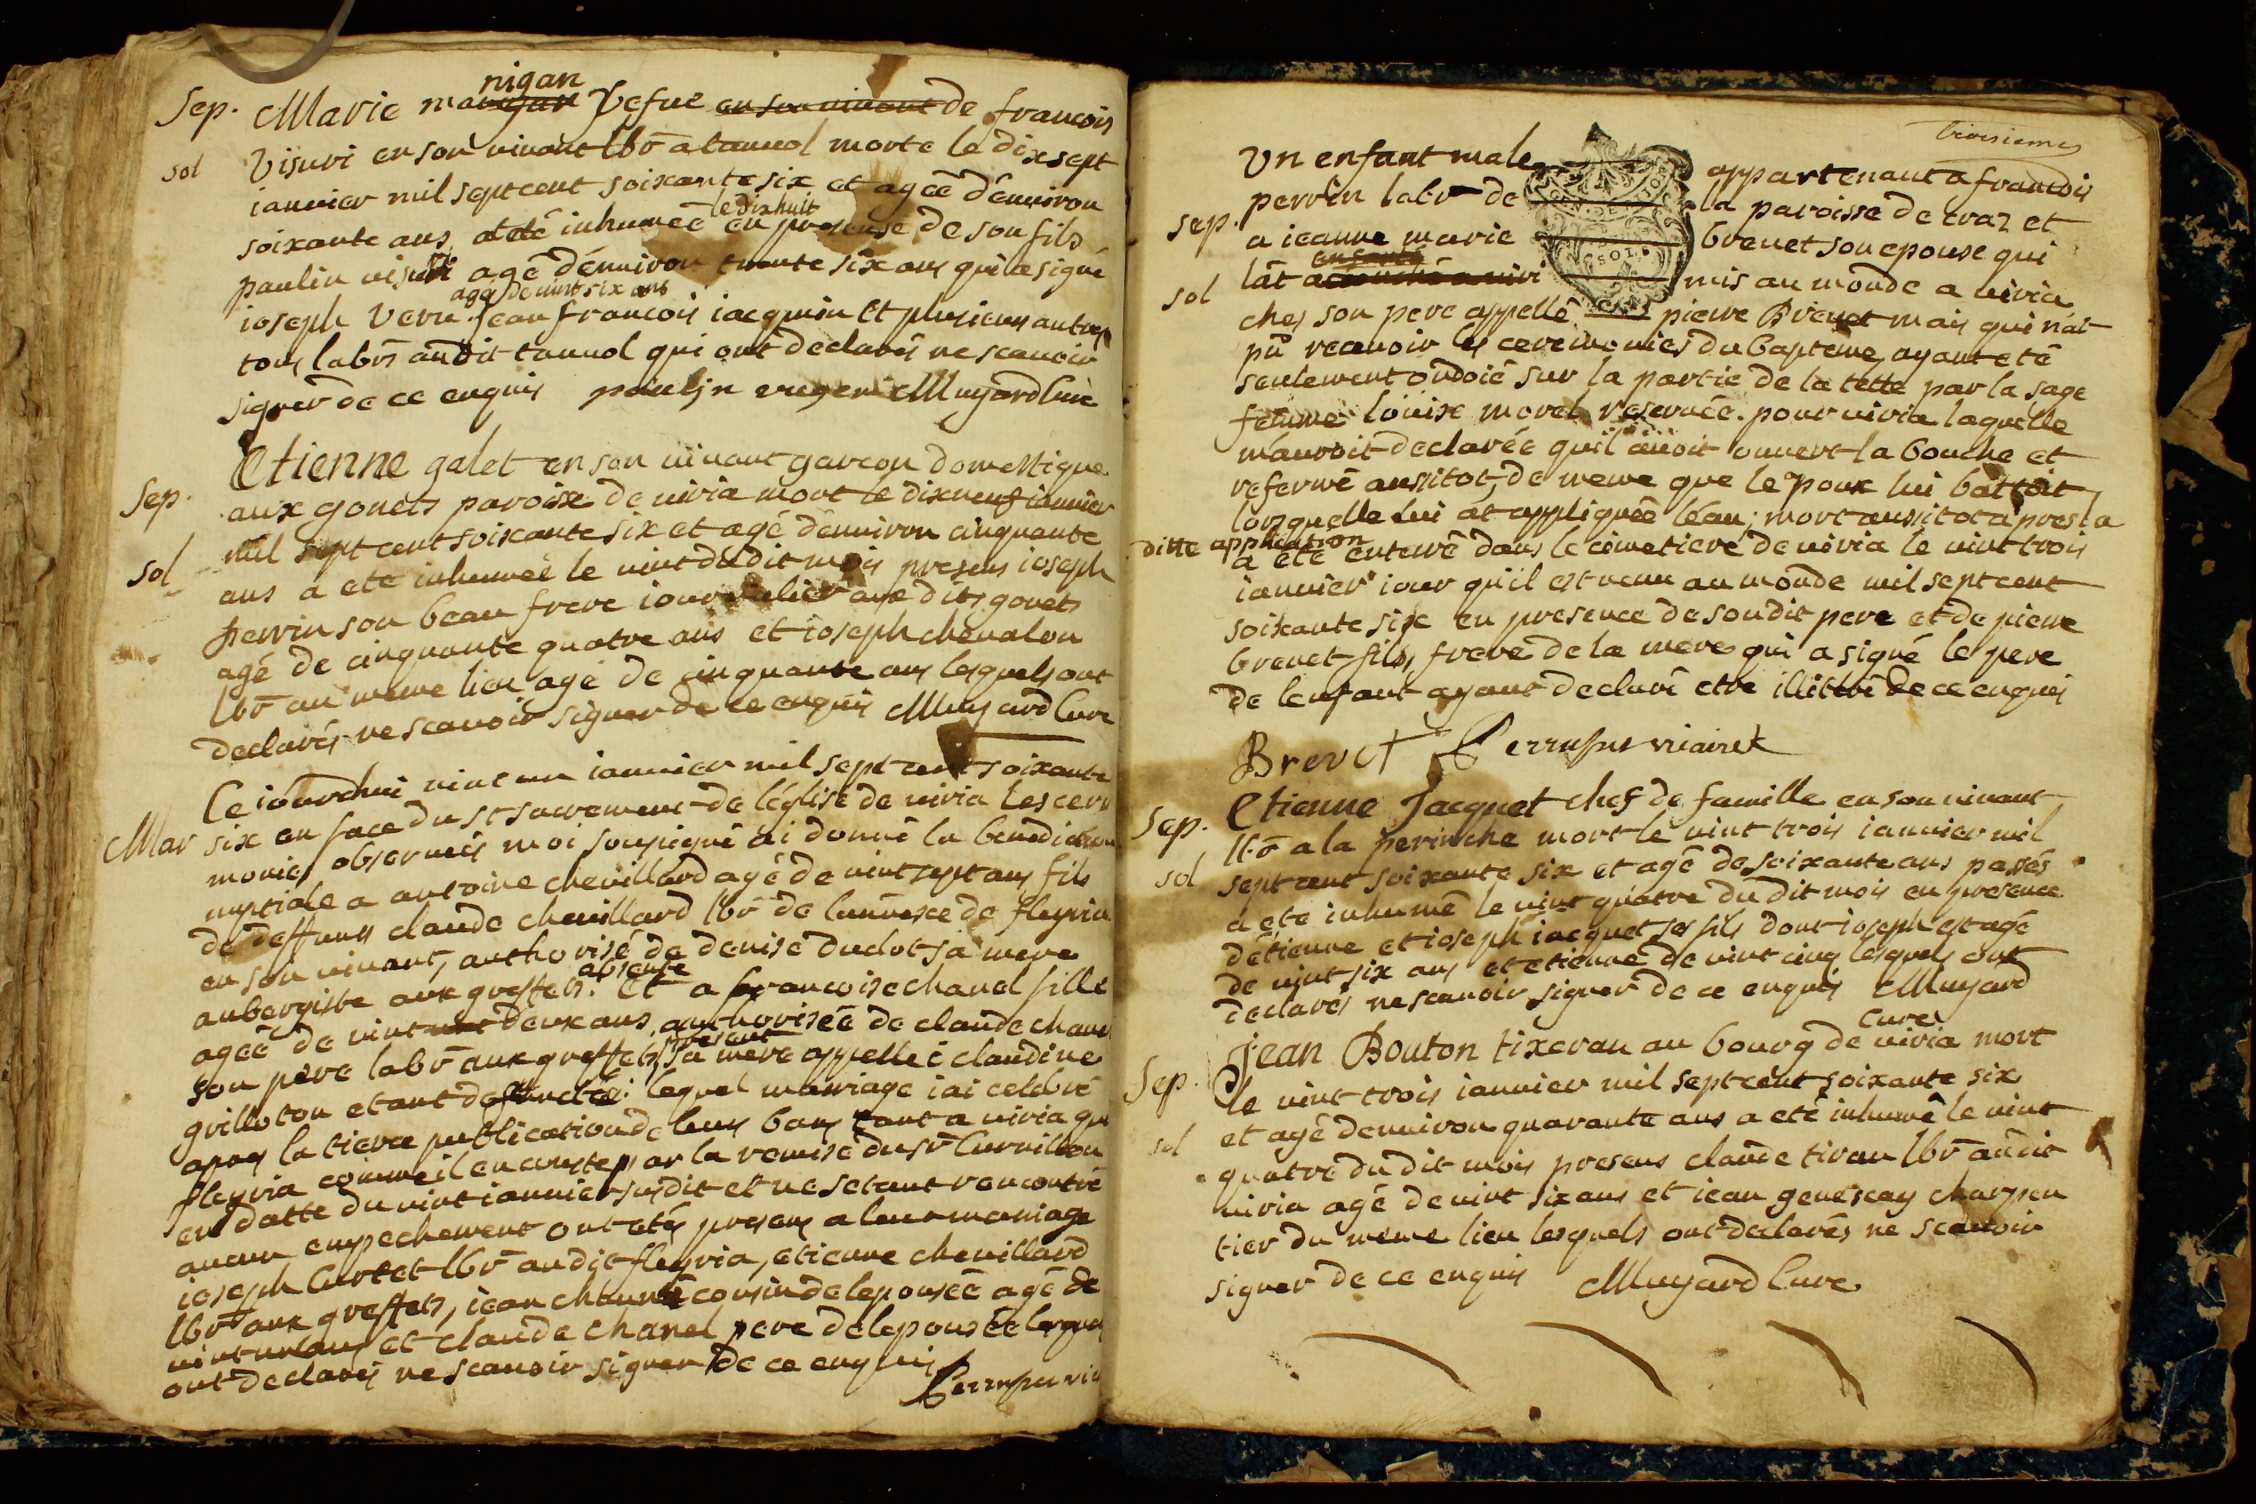 nigan
Sep. Marie mavegan Vefue en son vivant de francois
sol Visuri en son vivant lbr a tannol morte le dix sept
ianvier mil sept cent soixante six et agée d'environ
le dixhuit
soixante ans a eté inhumée en presense de son fils
paulin visuri agé d'environ trente six ans qui a signé
agé de vint six ans
ioseph Veru. jean francois iacquin et plusieurs autres
tous labrs audit tannol qui ont declarés ne scavoir
signer de ce enquis Muyard Curé
Etienne galet en son vivant garcon domestique
Sep. aux gonets paroisse de viria mort le dixneuf ianvier
mil sept cent soixante six et agé d'environ cinquante
sol ans a eté inhumeé le vint dudit mois presens ioseph
perrin son beau frere iournalier aux dits gonets
agé de cinquante quatre ans et ioseph chevalon
lbr au meme lieu agé de cinquante ans lesquels ont
declarés ne scavoir signer de ce enquis Muyard Cure
Ce iourdhui vint un ianvier mil sept cent soixante
Mar six en face du st sacrement de léglise de viria les cere
monies observées moi soussigné ai donné la benediction
nuptiale a antoine chevillard agé de vint sept ans fils
de deffunt claude chevillard lbr de de fleyria
en son vivant, authorisé de denise dudot sa mere
absente
aubergiste aux greffets. Et a francoise chanel fille
ageé de vint deux ans, authorisée de claude chanel
present
son pere labr aux greffets, sa mere appelleé claudine
grilloton etant defunctée: lequel marriage iai celebré
apres la tierce publication de leurs bans tant a viria qu
fleyria comme il en conste par la remise du sr Curnillon
en datte du vint ianvier susdit et ne setant rencontré
aucun empechement ont etés presens a leur mariage
ioseph Curtet lbr audit fleyria, etienne chevillard
lbr aux greffets, iean cousin de lepouseé agé de
vint un ans et claude chanel pere de lepouseé lesquels
ont declarés ne scavoir signer de ce enquis
troisieme
Un enfant male appartenant a francois
perrin labr de la paroisse de craz et
sep. a ieanne marie brevet son epouse qui
enfanté
sol lât acouché a viri mis au monde a viria
ches son pere appellé pierre Brevet mais qui nat
pu recevoir les ceremonies du bapteme, ayant eté
seulement ondoié sur la partie de la tette par la sage
femme loüise morel reservée pour viria laquelle
m'auroit declarée quil avoit ouvert la bouche et
refermé aussitot, de meme que le poux lui battoit
lorsquelle lui at appliquée léau; mort aussitot apres la
ditte application
a eté enterré dans le cimetiere de viria le vint trois
ianvier iour quil est venu au monde mil sept cent
soixante six en presence de son dit pere et de pierre
brevet fils, frere de la mere qui a signé le pere
de lenfant ayant declaré etre illittré de ce enquis
Brevet
Sep. Etienne Jacquet chef de famille en son vivant
lbr a la perinche mort le vint trois ianvier mil
sol sept cent soixante six et agé de soixante ans passés
a eté inhumé le vint quatre du dit mois en presence
détienne et ioseph iacquet ses fils dont ioseph est agé
de vint six ans et etienne de vint cinq lesquels ont
declarés ne scavoir signer de ce enquis Muyard
Cure
Jean Bouton tixeran au bourg de viria mort
Sep. le vint trois ianvier mil sept cent soixante six
et agé denviron quarante ans a eté inhumé le vint
sol quatre du dit mois presens claude tiran lbr audit
viria agé de vint six ans et iean genescay charpen
tier du meme lieu lesquels ont declarés ne scavoir
signer de ce enquis Muyard Cure